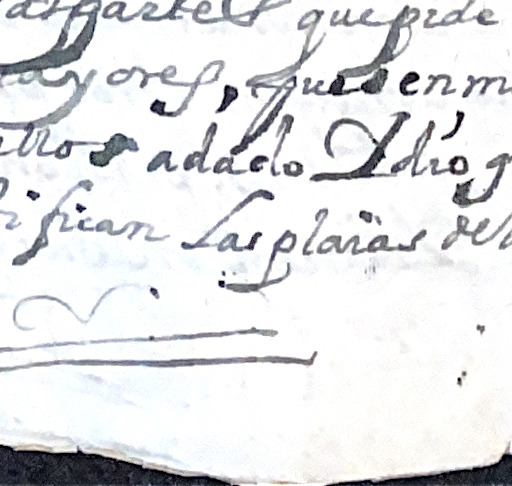 aspartes que pide
ayores, pues en m
ellos adado Ydio g
ifican las plaias del